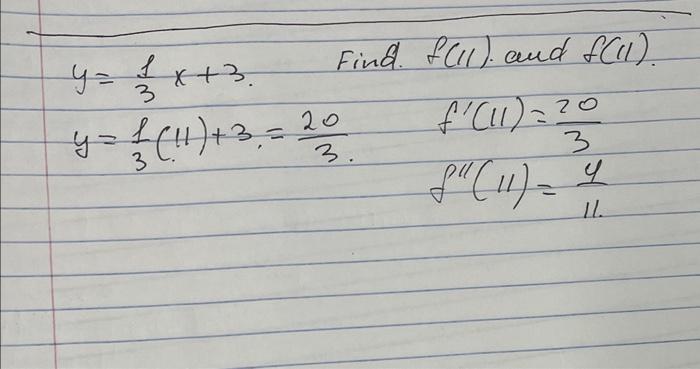 y = 1/3 x + 3. Find. f(11). and f(11).
y = 1/3 (11) + 3. = 20/3. f'(11) = 20/3
f''(11) = y/11.